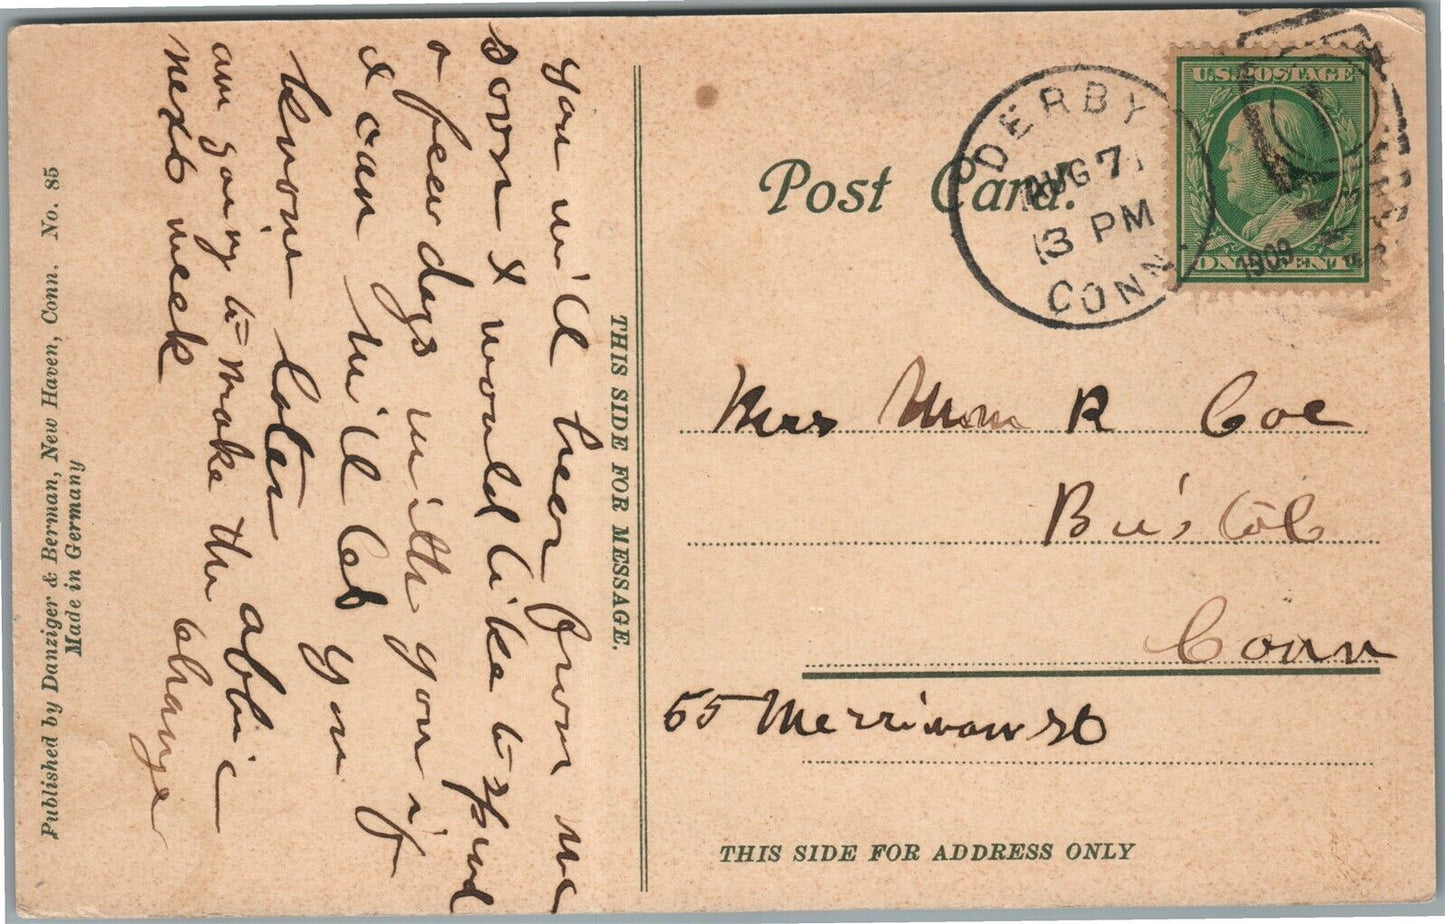 Post Card.
DERBY
AUG 7
3 PM
1909
CONN.
U.S. POSTAGE
ONE CENT
Mrs Wm R Coe
Bristol
Conn
55 Merriman St
THIS SIDE FOR ADDRESS ONLY
THIS SIDE FOR MESSAGE.
you will hear from me
soon I would like to spend
a few days with you if
I can will let you
know later Abbie
am going to make the change
next week
Published by Danziger & Berman, New Haven, Conn. No. 85
Made in Germany